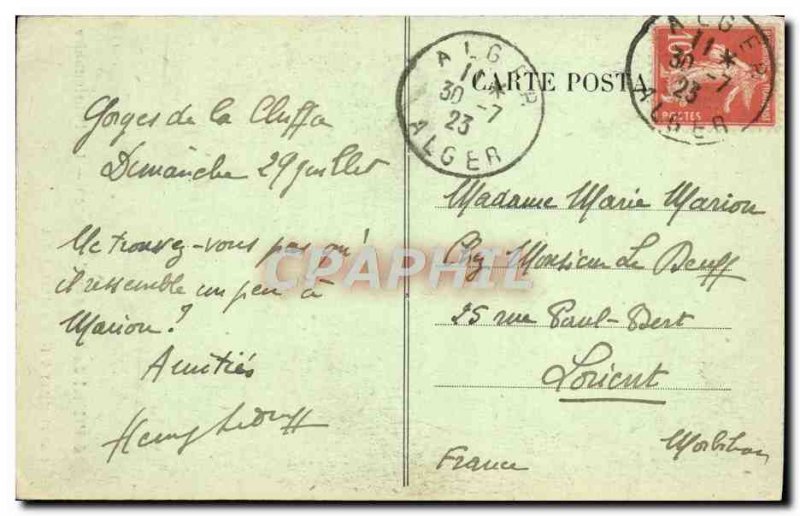 Gorges de la Chiffa
Dimanche 29 juillet
Ne trouvez-vous pas qu'
il ressemble un peu à
Marion ?
Amitiés
Henry Le Deuff
CARTE POSTA
ALGER
11 *
30 -7
23
ALGER
ALGER
11 *
30 -7
23
ALGER
10
POSTES
Madame Marie Marion
Chez Monsieur Le Deuff
25 rue Paul-Bert
Lorient
Morbihan
France
CPAPHIL